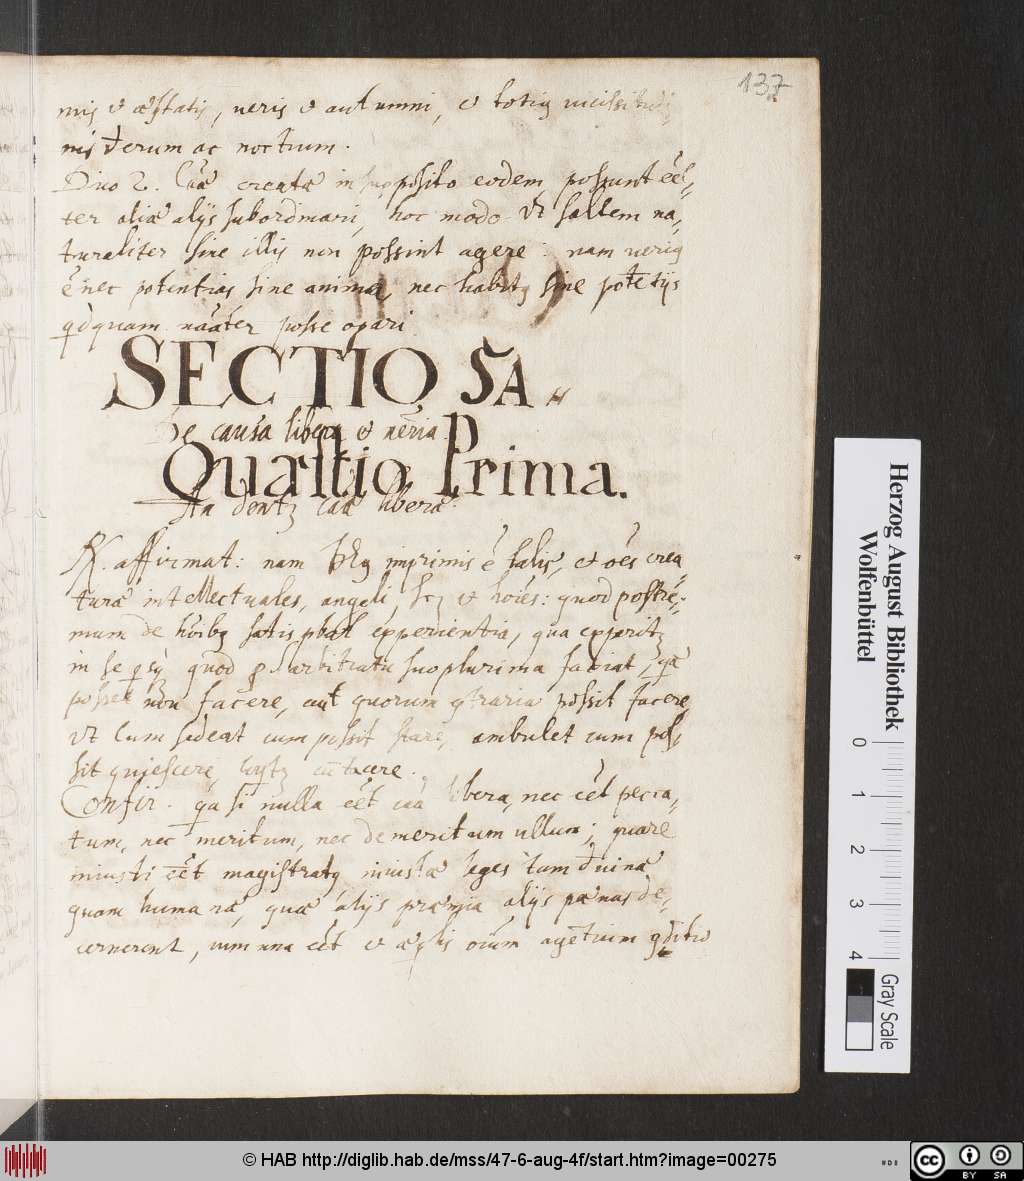 137
mis et æstatis, veris et autumni, et totiꝰ vicissitudi,
nis dierum ac noctium.
Dico 2. Cãæ creatæ in supposito eodem possunt eẽn,
ter aliæ alijs subordinari, hoc modo vt saltem na,
turaliter sine illis non possint agere: nam
ẽ nec potentias sine anima, nec habitꝰ sine potẽtijs
qdquam nãater posse opãri
SECTIO 5A.
De causa libera et neria.
Quæstio Prima.
An dentꝰ cãa libera.
R. affirmat: nam Dẽꝰ inprimis ẽ talis, et oẽs crea
turæ intellectuales, angeli, scꝫ et hoĩes: quod postre,
mum de hoĩbꝰ satis pbat experientia, qua experitꝰ
in se qsqꝫ quod p arbitratu suo plurima faciat, qã
posset non facere, aut quorum ꝯtraria possit facere,
vt Cum sedeat cum possit stare, ambulet cum pos,
sit quiescere, tacere.
Confir. qa si nulla eẽt cãa libera, nec eẽt pecca,
tum, nec meritum, nec demeritum ullum; quare
iniusti eẽt magistratꝰ iniustæ leges tum diuinæ
quam humanæ, quæ alijs præmia alijs pœnas de,
cernerent, cum una eẽt et æqlis oĩum agẽtium ꝯditio
Herzog August Bibliothek
Wolfenbüttel
0 1 2 3 4
Gray Scale
© HAB http://diglib.hab.de/mss/47-6-aug-4f/start.htm?image=00275
cc BY SA